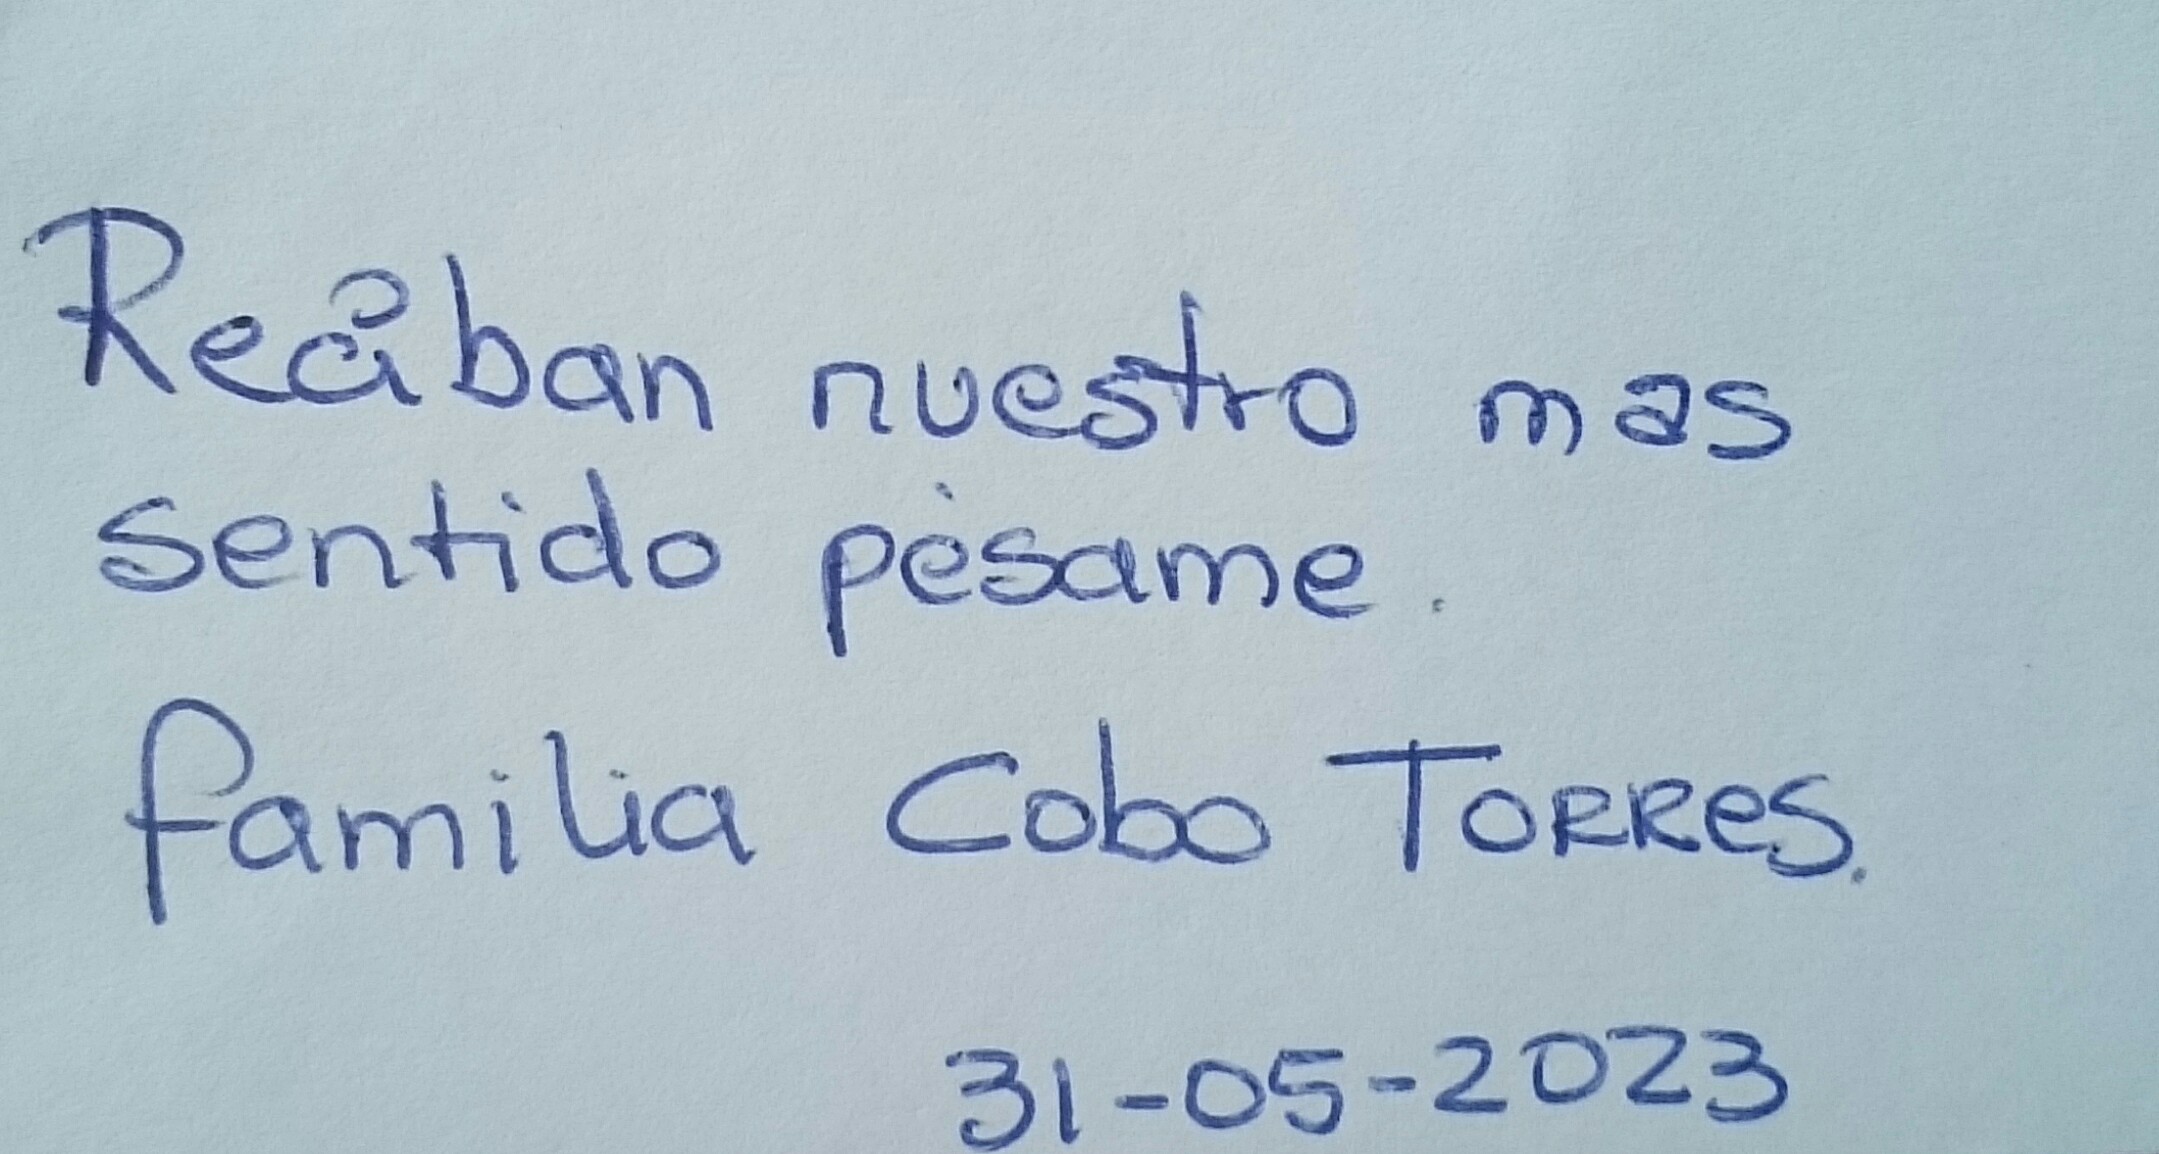 Reciban nuestro mas
sentido pésame.
familia Cobo TORRes.
31-05-2023